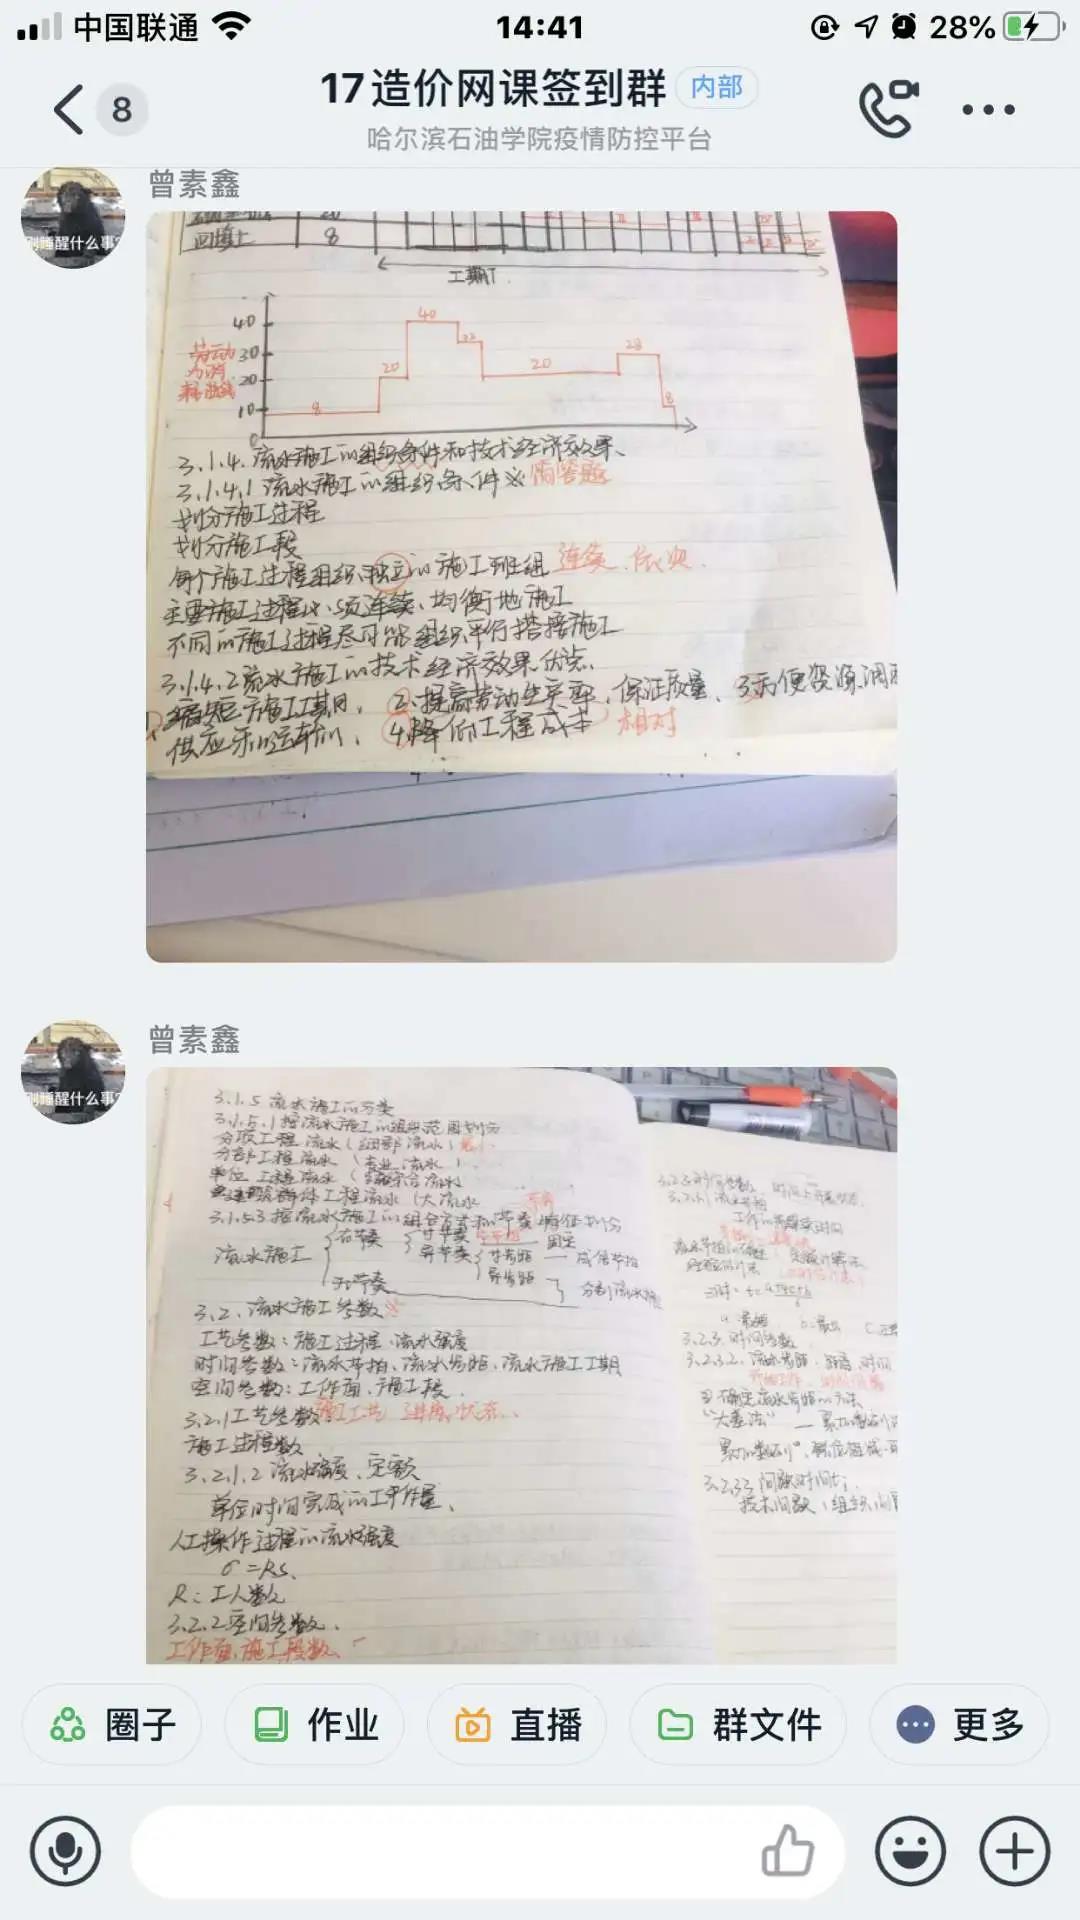 中国联通
14:41
28%
8
17造价网课签到群
内部
哈尔滨石油学院疫情防控平台
曾素鑫
刚睡醒什么事?
回填土 8
工期T.
40
30
20
10
0
劳动
力消
耗曲线
8
20
40
20
28
8
3.1.4.流水施工的组织条件和技术经济效果、
3.1.4.1流水施工的组织条件※简答题
划分施工过程
划分施工段
每个施工过程组织独立的施工班组 连续、依次.
主要施工过程必须连续、均衡地施工
不同的施工过程尽可能组织平行搭接施工
3.1.4.2流水施工的技术经济效果优点、
1.缩短施工工期、 2.提高劳动生产率,保证质量、3.方便资源调
供应 4.降低工程成本 相对
曾素鑫
刚睡醒什么事?
3.1.5 流水施工的分类
3.1.5.1按流水施工的组织范围划分
分项工程流水(细部流水)最小
分部工程流水(专业流水)
单位工程流水(综合流水)
群体工程流水(大流水
3.1.5.3按流水施工的组合方式和节奏特征划分
流水施工
有节奏
等节奏
固定
异节奏
等步距
成倍节拍
异步距
无节奏
分别流水
3.2、流水施工参数※
工艺参数:施工过程、流水强度
时间参数:流水节拍、流水步距、流水施工工期
空间参数:工作面、施工段.
3.2.1工艺参数 施工工艺 进展状态、
施工过程数
3.2.1.2流水强度、定额
单位时间完成的工作量、
人工操作过程的流水强度
σ=RS、
R:工人数
3.2.2空间参数.
工作面、施工段数、
3.2.3时间参数
3.2.3.1流水节拍
工作的持续时间
定额计算法
3.2.3.时间参数
3.2.3.2.流水步距
确定流水步距的方法
“大差法”
3.2.3.3间歇时间
技术间歇、组织间
圈子
作业
直播
群文件
更多